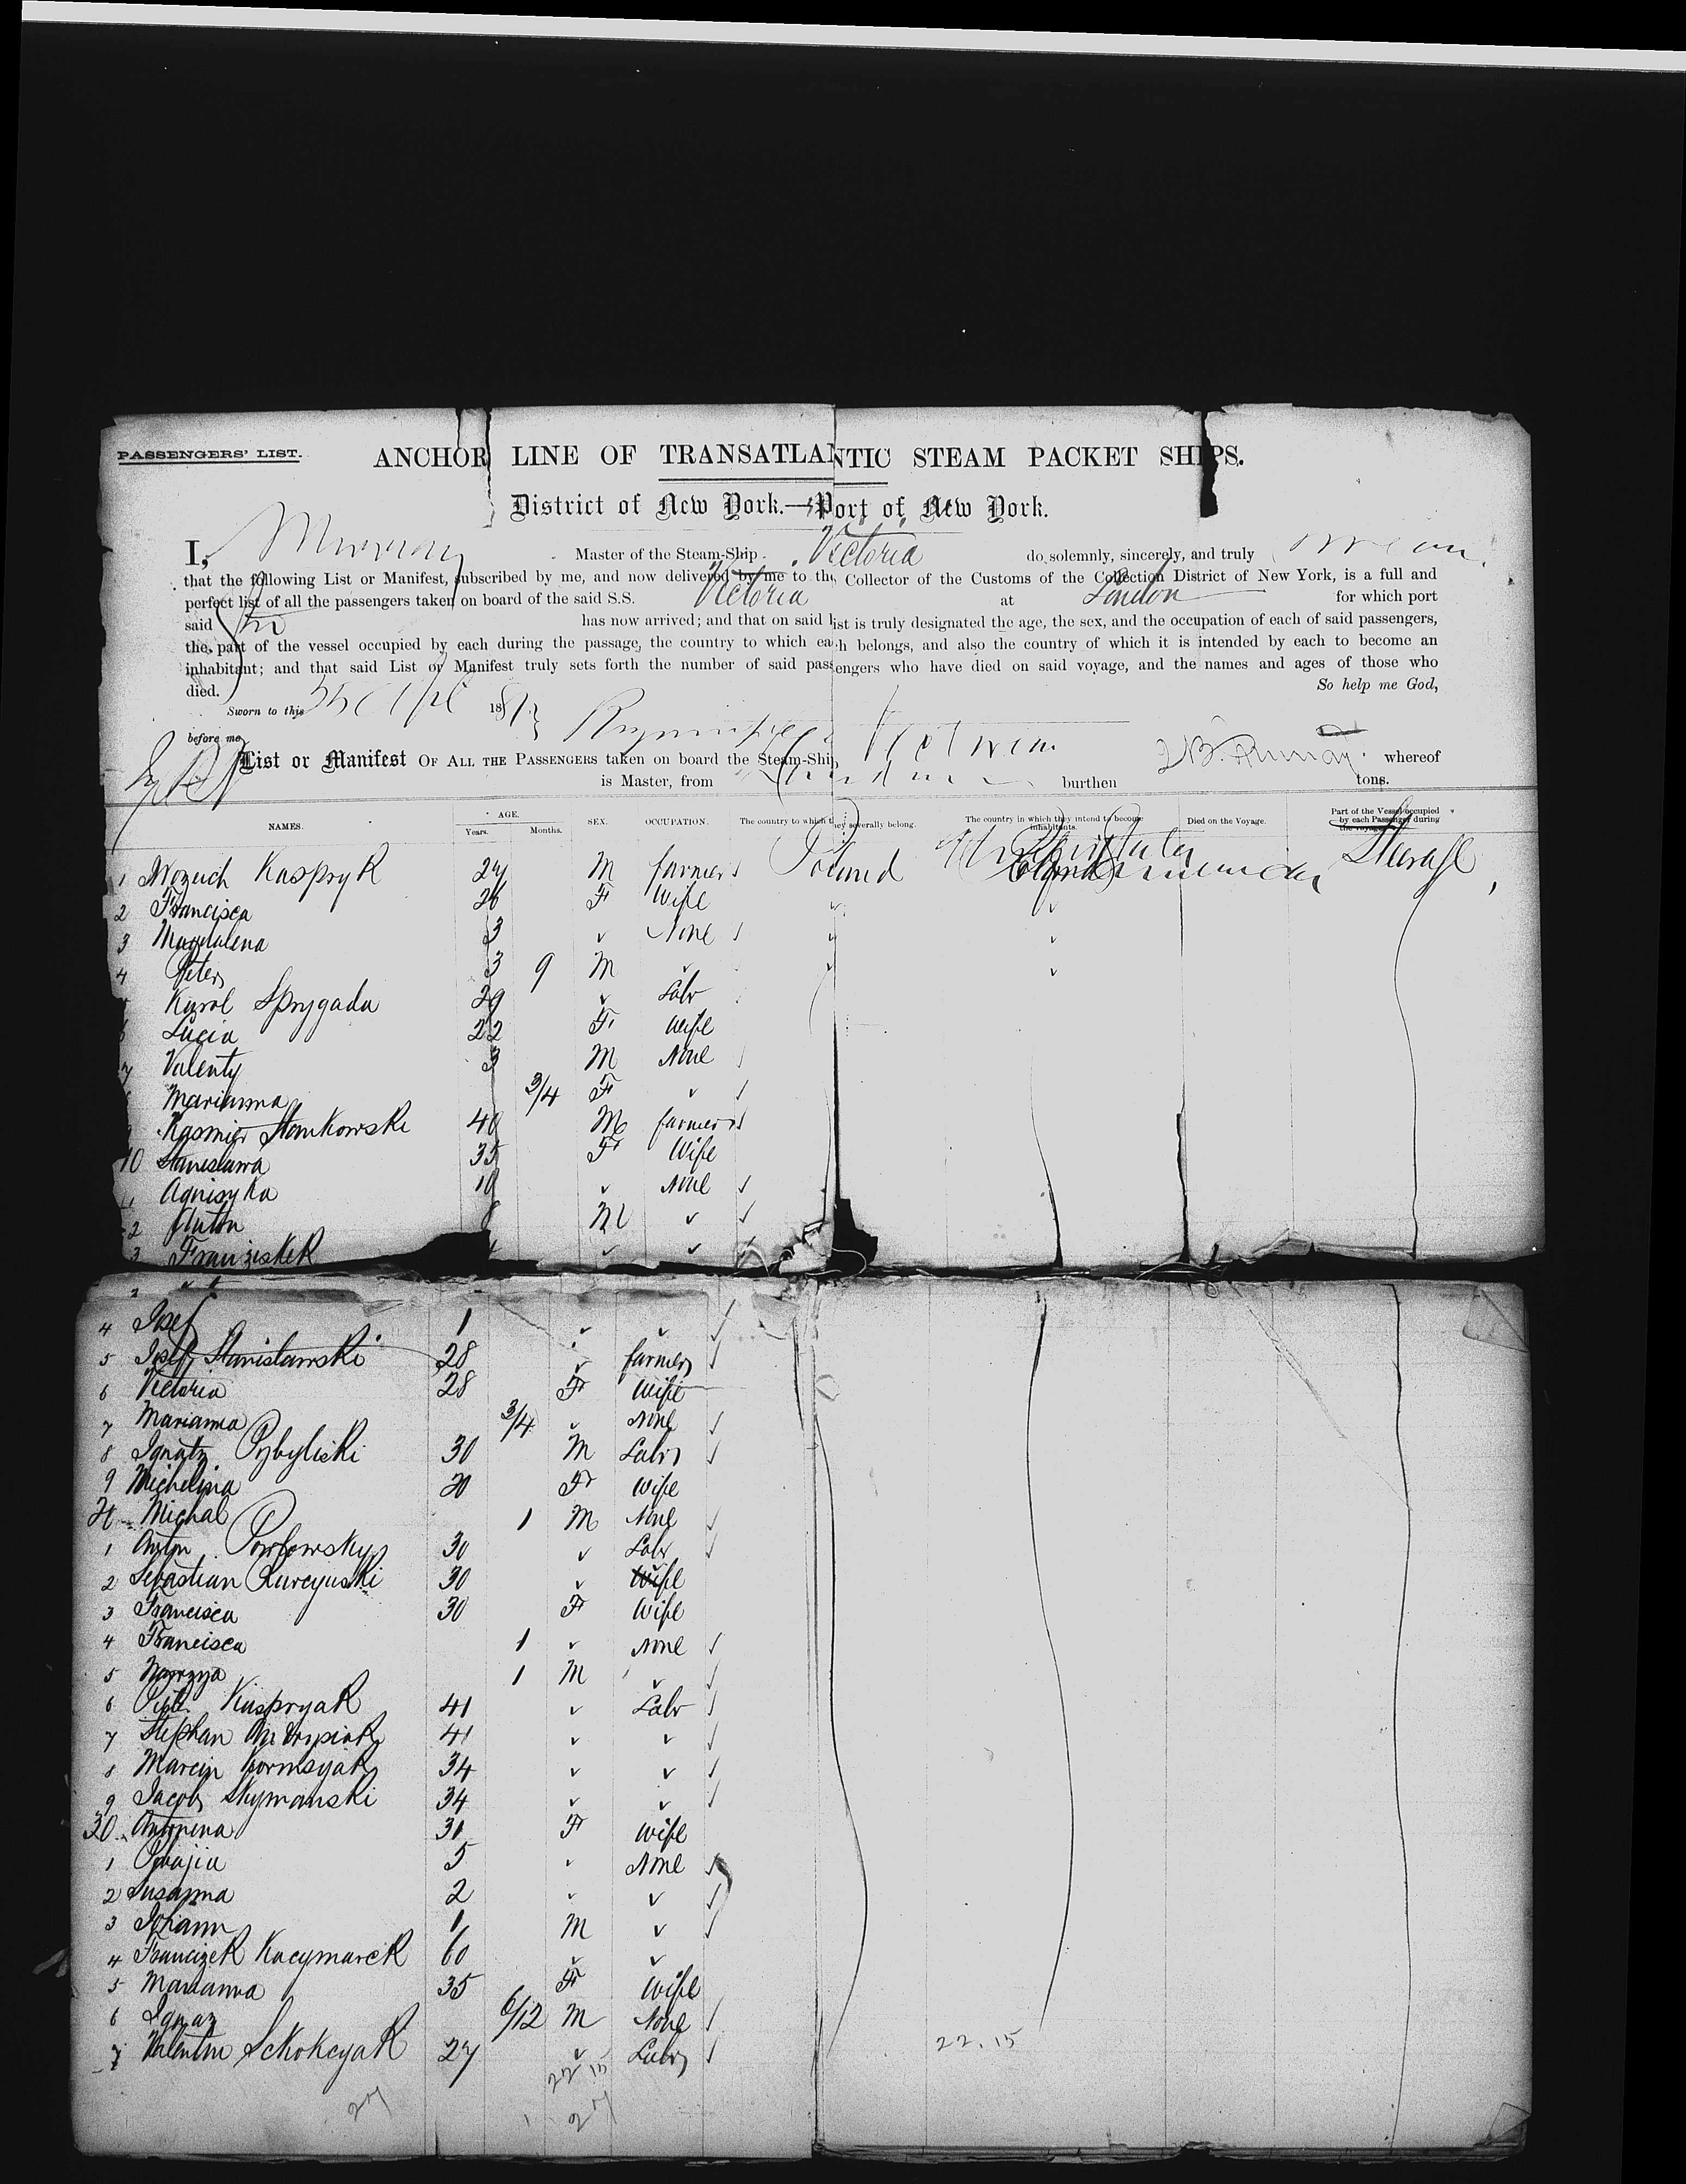 PASSENGERS' LIST.
ANCHOR LINE OF TRANSATLANTIC STEAM PACKET SHIPS.
District of New York.—Port of New York.
I, Murray Master of the Steam-Ship Victoria do, solemnly, sincerely, and truly swear
that the following List or Manifest, subscribed by me, and now delivered by me to the Collector of the Customs of the Collection District of New York, is a full and
perfect list of all the passengers taken on board of the said S.S. Victoria at London for which port
said has now arrived; and that on said list is truly designated the age, the sex, and the occupation of each of said passengers,
the part of the vessel occupied by each during the passage, the country to which each belongs, and also the country of which it is intended by each to become an
inhabitant; and that said List or Manifest truly sets forth the number of said passengers who have died on said voyage, and the names and ages of those who
died. So help me God,
Sworn to this 188
before me
List or Manifest OF ALL THE PASSENGERS taken on board the Steam-Ship Victoria whereof
is Master, from London burthen tons.
NAMES. AGE. Years. Months. SEX. OCCUPATION. The country to which they severally belong. The country in which they intend to become inhabitants. Died on the Voyage. Part of the Vessel occupied by each Passenger during the voyage.
1 Kaspryk 24 M farmer Poland Steerage
2 Francisca 26 F Wife
3 Magdalena 3 None
4 Peter 3 9 M
Karol Sprygada 29 Labr
6 Lucia 22 F Wife
7 Valenty 3 M None
Marianna 3/4 F
Kasmier Stankowski 40 M farmer
10 Stanislawa 35 F Wife
11 Agnisyka 10 None
2 Anton M
3 Franziskek
4 Josef 1
5 Josef Stanislawski 28 farmer
6 Victoria 28 F Wife
7 Marianna 3/4 None
8 Ignatz Pzybyliski 30 M Labr
9 Michelina 20 F Wife
20 Michal 1 M None
1 Anton Pawlowsky 30 Labr
2 Sebastian 30 Wife
3 Francisca 30 F Wife
4 Francisca 1 None
5 1 M
6 Piotr Kaspryak 41 Labr
7 Stephan 41
8 Marcin 34
9 Jacob Skymanski 34
30 Antonina 31 F Wife
1 5 None
2 Susanna 2
3 Johann 1 M
4 Francizek Kacymarek 60
5 Marianna 35 F Wife
6 Ignaz 6/12 M None
7 Valentin Sckokcyak 27 Labr
22.15
22 15
27
27